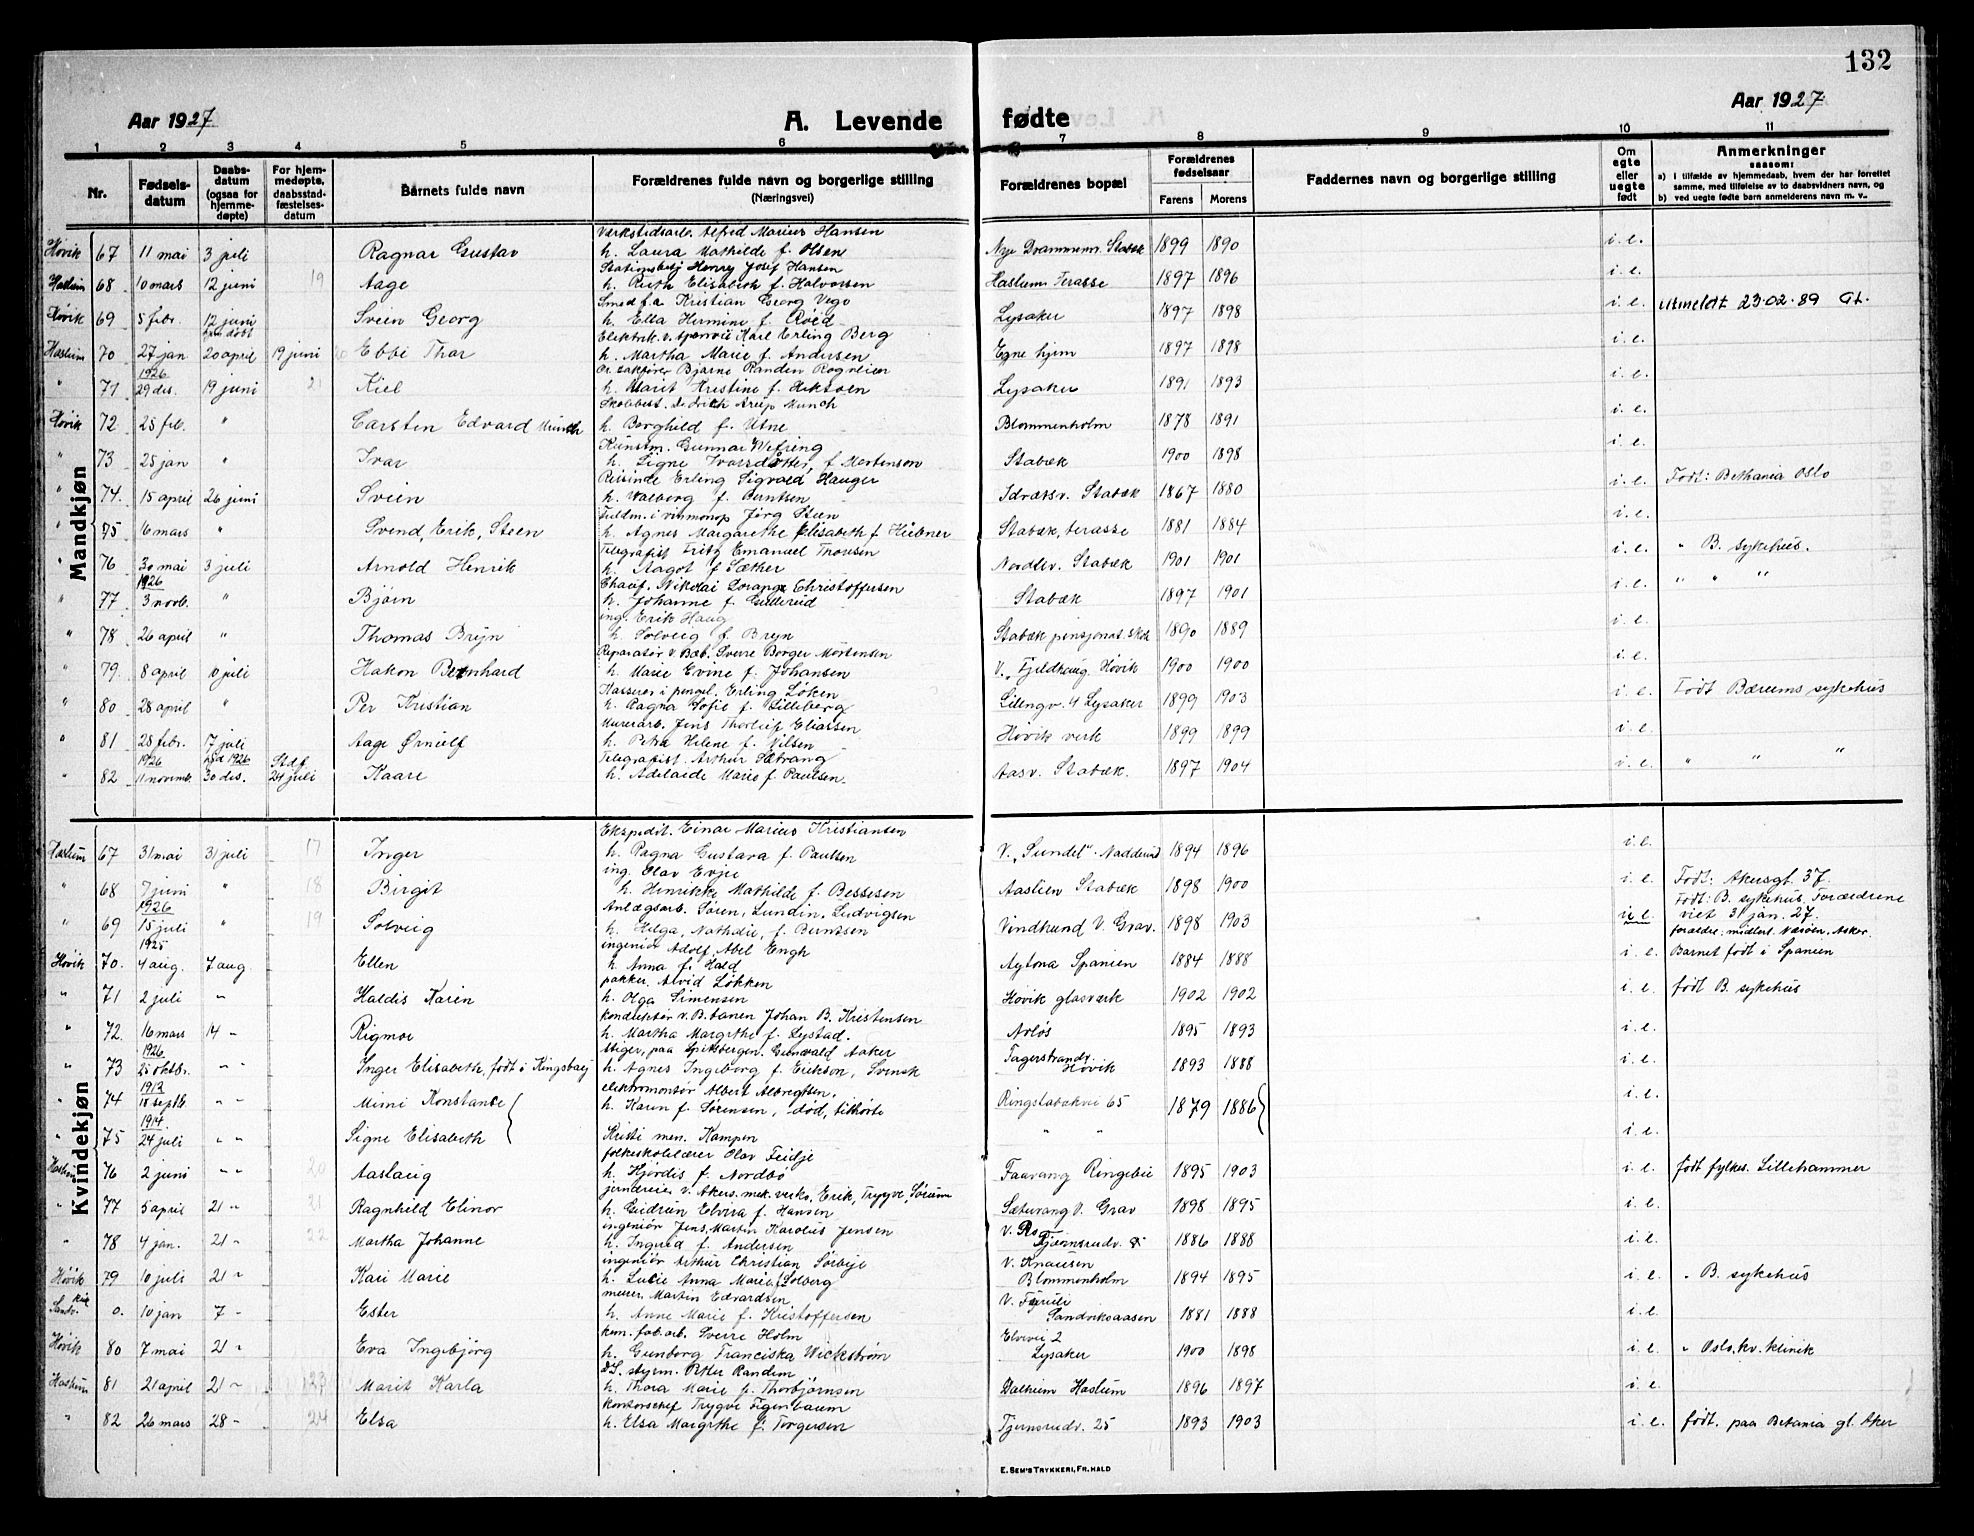 132
Aar 1927
A. Levende fødte
Aar 1927
1 2 3 4 5 6 7 8 9 10 11
Nr.
Fødsels-
datum
Daabs-
datum
(ogsaa for
hjemme-
døpte)
For hjem-
medøpte,
daabsstad-
fæstelses-
datum
Barnets fulde navn
Forældrenes fulde navn og borgerlige stilling
(Næringsvei)
Forældrenes bopæl
Forældrenes
fødselsaar
Farens Morens
Faddernes navn og borgerlige stilling
Om
egte
eller
uegte
født
Anmerkninger
saasom:
a) i tilfælde av hjemmedaab, hvem der har forrettet
samme, med tilføielse av to daabsvidners navn, og
b) ved uegte fødte barn anmelderens navn m. v.
Mandkjøn
Verkstedsarb. Alfred Marius Hansen
Høvik 67 11 mai 3 juli Ragnar Gustav h. Laura Mathilde f. Olsen Nye Drammensv. Stabæk 1899 1890 i. e.
Stationsbetj Henry Josef Hansen
Haslum 68 10 mars 12 juni 19 Aage h. Ruth Elisabeth f. Halvorsen Haslum Terasse 1897 1896 i. e.
Smed f.a. Kristian Georg Vego
Høvik 69 5 febr. 12 juni Svein Georg h. Ella Hermine f. Lysaker 1897 1898 i. e. Utmeldt 23.02.89
Elektrik. v. Karl Erling Berg
Haslum 70 27 jan 20 april 19 juni 20 Ebbe Thor h. Martha Marie f. Andersen Egne hjem 1897 1898 i. e.
1926 Or. sakfører Bjarne Randen Rognlien
" 71 29 des. 19 juni 21 Kiel h. Marit Kristine f. Lysaker 1891 1893 i. e.
Skobbest. Didrich Arup Munch
Høvik 72 25 feb. " Carsten Edvard Munch h. Borghild f. Utne Blommenholm 1878 1891 i. e.
Kunstm. Gunnar Wefring
" 73 25 jan " Ivar h. Signe Ivarsdotter, f Mortenson Stabæk 1900 1898 i. e.
Reisende Erling Sigvald Hauger
" 74. 15 april 26 juni Svein h. Valborg f. Berntsen Idrætsv. Stabæk 1867 1880 i. e. Født: Bethania Oslo
Fuldm. i vinmonop Jörg Steen
" 75 16 mars " Svend, Erik, Steen h. Agnes Margarethe Elisabeth f Hübner Stabæk, terasse 1881 1884 i. e.
Telegrafist Fritz Emanuel Thoresen
" 76 30 mai 3 juli Arnold Henrik h. Aagot f Sæther Nordlv. Stabæk 1901 1901 i. e. " B. sykehus.
1926 Chauf. Nikolai Lorange Christoffersen
" 77 3 novb. " Bjørn h. Johanne f. Gullerud Stabæk 1897 1901 i. e. " " "
ing. Erik Haug
" 78 26 april " Thomas Bryn h. Solveig f. Bryn Stabæk pensjonat. 1890 1889 i. e.
Reparatør v. Bæb. Sverre Borger Mortensen
" 79. 8 april 10 juli Hakon Bernhard h. Marie Evine f. Johansen V. "Fjeldhaug Høvik 1900 1900 i. e.
Kasserer i pengel. Erling Løken
" 80 28 april " Per Kristian h. Ragna Sofie f. Lilleberg Lillengv. 4 Lysaker 1899 1903 i. e. Født Bærums sykehus
Murerarb. Jens Thorleif Eliassen
" 81 28 febr. 7 juli Aage Ørnulf h. Petra Helene f. Nilsen Høvik verk 1899 1899 i. e.
1926 1926 Stdf. Telegrafist. Arthur Sætrang
" 82 11 novemb. 30 des. 24 juli Kaare h. Adelaide Marie f. Paulsen. Aasv. Stabæk. 1897 1904 i. e. " " "
Kvindekjøn
Ekspedit. Einar Marius Kristiansen
Haslum 67 31 mai 31 juli 17 Inger h. Ragna Gustava f. Paulsen V. "Sundet". Nadderud 1894 1896 i. e.
ing. Olav Evje
" 68 7 juni " 18 Birgit h. Henrikke Mathilde f. Bessesen Aastien Stabæk 1898 1900 i. e. Født: Akersgt. 37.
1926 Anlægsarb. Søren, Lundin, Ludvigsen Født: B. sykehus. Forældrene
" 69 15 juli " 19 Solveig h. Helga, Nathalie, f. Berntsen Vindhund V. Grav. 1898 1903 i. e. viet 31 jan. 27.
forældre: midlert. Næsøen, Asker.
1925 ingeniør Adolf Abel Engh
Høvik 70. 4 aug. 7 aug. Ellen h. Anna f. Hald Aytona Spanien 1884 1888 i. e. Barnet født i Spanien
pakker. Arvid Løkken
" 71 2 juli " Haldis Karen h. Olga Simensen Høvik glasværk 1902 1902 i. e. født B. sykehus
Konduktør v. B. banen Johan B. Kristensen
" 72. 16 mars 14 - Rigmor h. Martha Margrthe f. Lystad. Avløs 1895 1893 i. e.
1926 Stiger, paa Spitsbergen. Gunvald Aaker Fagerstrandv.
" 73 25 oktbr. " " Inger Elisabeth, født i Kingsbay h. Agnes Ingeborg f. Erikson, Svensk Høvik 1893 1888 i. e.
1913 elektromontør Albert Albregtsen.
" 74 18 septb. " - Mimi Konstance h. Karen f. Sørensen, død, tilhørte Ringstabækvei 65 1879 1886 i. e.
1914
" 75 24 juli " " Signe Elisabeth Kristi men. Kampen " " i. e.
folkeskolelærer Olav Feidje
Haslum 76 2 juni " " 20 Aaslaug h. Hjørdis f. Nordbø Faavang Ringebu 1895 1903 i. e. født fylkes. Lillehammer
jerndreier v. Akers. mek. verks, Erik, Trygve, Sørum
" 77 5 april 21 " 21 Ragnhild Elinor h. Gudrun Elvira f. Hansen Sætervang V. Grav 1898 1895 i. e.
ingeniør Jens, Martin Karolius Jensen
" 78 4 jan. 21 - 22 Martha Johanne h. Ingrid f. Andersen Fjernsrudv. 1886 1888 i. e.
ingeniør Arthur Christian Sørbye V. Knausen
Høvik 79 10 juli 21 " Kari Marie h. Lucie Anna Marie f. Solberg Blommenholm 1894 1895 i. e. " B. sykehus
murer Martin Edvardsen
Sandv. kir. 0. 10 jan 7 - Ester h. Anne Marie f. Kristoffersen Sandviksaasen 1881 1888 i. e.
kem. fab. arb. Sverre Holm Elvevei 2
Høvik 80 7 mai 21 " Eva Ingebjørg h. Gunborg Franciska Wickstrøm Lysaker 1900 1898 i. e. " Oslo. kv. klinik
DS. styrm. Peter Randem
Haslum 81 21 april 21 " 23 Marit Karla h. Thora Marie f. Thorbjørnsen Dalheim Haslum 1896 1897 i. e.
Kontorchef Trygve Figenbaum
" 82 26 mars 28 - 24 Elsa h. Elsa Margrthe f. Torgersen Fjernsrudv. 25 1893 1903 i. e. født. paa Betania gl. Aker
E. SEM'S TRYKKERI, FR. HALD